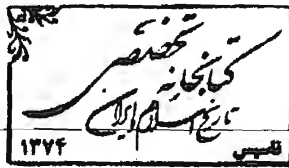 کتابخانه تخصصی
تاریخ اسلام و ایران
۱۳۷۴ تأسیس